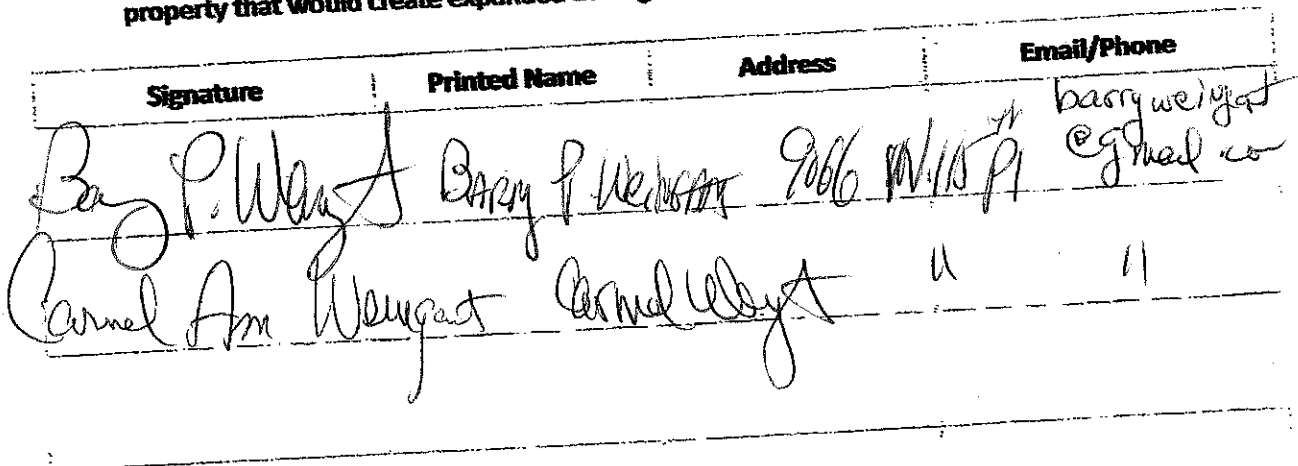 property that would create expanded
Signature Printed Name Address Email/Phone
Barry P. Weingart BARRY P. WEINGART 9066 NW 115 Pl barryweingart
@gmail.co
Carmel Ann Weingart Carmel Weingart " "